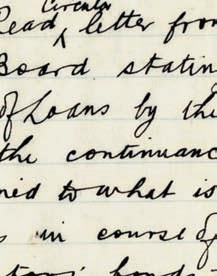 Circular
Read ^ letter from
Board statin
of Loans by the
the continuanc
ned to what is
s in course of
hands